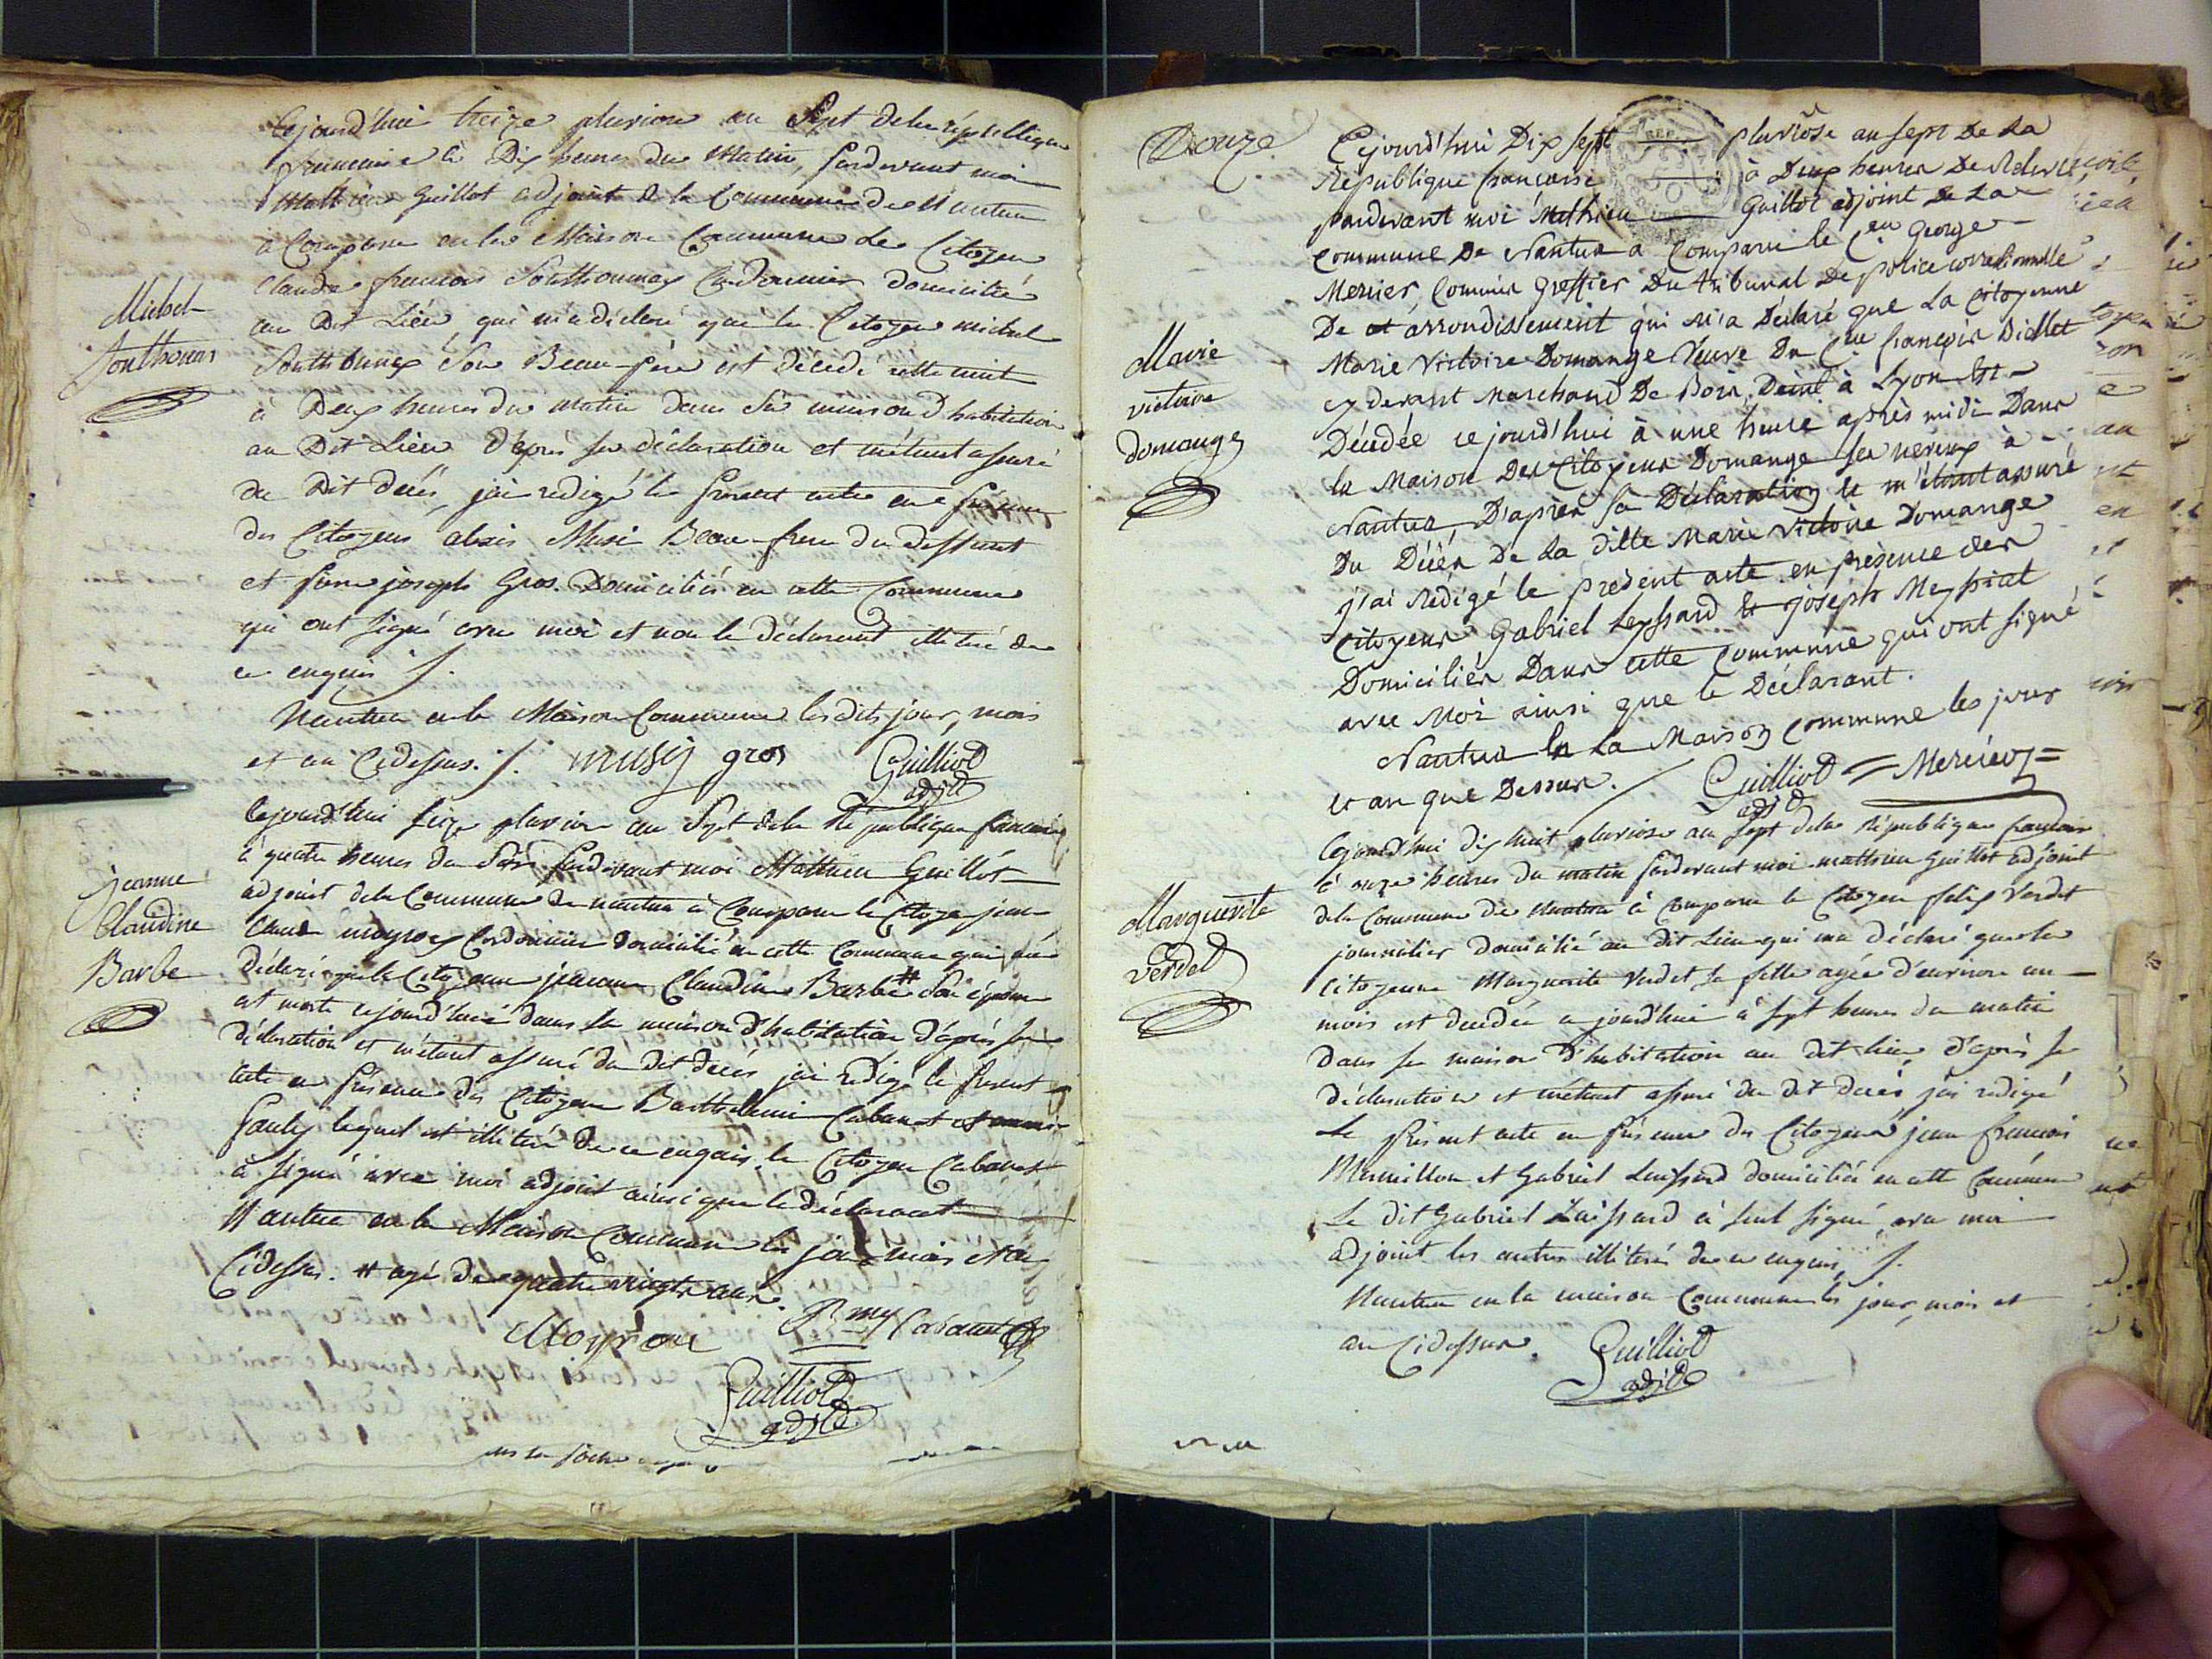 Cejourd'hui treize pluviose an Sept de la république
francaise à Dix heures du Matin, pardevant moi
Mathieu Guillot adjoint de la Commune de Nantua
a Comparu en la Maison Commune le Citoyen
Claude francois Southonnax Cordonnier domicilié
au Dit Lieu, qui m'a déclaré que le Citoyen michel
Southonnax Son Beau-père est décedé cette nuit
à Deux heures du matin dans sa maison d'habitation
au Dit Lieu D'après sa déclaration et m'étant assuré
du Dit decés, j'ai redigé le present acte en présence
des Citoyens alexis Musi Beau-frere du deffunt
et pierre joseph Gros. Domiciliés en cette Commune
qui ont signé avec moi et non le déclarant illitéré de
ce enquis ./.
Nantua en la Maison Commune les dits jour, mois
et an Cidessus ./. musy gros Guilliot
adjt
Michel
Southonax
Cejourd'hui seize pluviose an Sept de la République francaise
à quatre heures du Soir pardevant moi Mathieu Guillot
adjoint de la Commune de nantua à Comparu le Citoyen jean
Claude moyrou Cordonnier domicilié en cette Commune qui m'a
déclaré que la Citoyenne jeanne Claudine Barbe # Son épouse
est morte cejourd'hui dans sa maison d'habitation d'après sa
déclaration et m'étant assuré du dit decés j'ai redigé le present
acte en présence des Citoyens Barthelemi Cabanet et
lequel est illitéré de ce enquis. le Citoyen Cabanet
à signé avec moi adjoint ainsi que le déclarant
Nantua en la Maison Commune les jour mois et an
Cidessus. # agé de quatre vingts ans.
Moyrou Bmy Cabanet
Guilliot
adjt
Jeanne
Claudine
Barbe
Douze
Cejourd'hui Dix sept pluviôse an sept De La
République francaise à Deux heures De Relevée
pardevant moi Mathieu Guillot adjoint De La
Commune De Nantua a Comparu le Cen George
Mercier, Commis Greffier Du tribunal De police correctionnelle
De cet arrondissement qui m'a Déclaré que La Citoyenne
Marie Victoire Domange Veuve Du Cen françois Didlet
cy devant Marchand De Bois, à Lyon Est
Décédée cejourd'hui à une heure après midi Dans
la Maison Des Citoyens Domange ses neveux à
Nantua, D'après sa Déclaration Et m'étant assuré
Du Décès De La ditte Marie Victoire Domange
j'ai Rédigé le present acte en presence des
Citoyens Gabriel Leyssard Et joseph
Domiciliés Dans cette Commune qui ont signé
avec Moi ainsi que le Déclarant.
Nantua En La Maison Commune les jours
Et an que Dessus. Guilliot Mercier
adjt
Marie
victoire
domange
Cejourd'hui dix huit pluviose an Sept de la République francaise
à onze heures du matin pardevant moi mathieu Guillot adjoint
de la Commune de Nantua à Comparu le Citoyen felix Verdet
journalier domicilié au dit Lieu qui m'a déclaré que la
Citoyenne Marguerite Verdet sa fille agée d'environ un
mois est decedée cejourd'hui à sept heures du matin
dans sa maison D'habitation au dit lieu d'après sa
déclaration et m'étant assuré du dit decés j'ai redigé
le présent acte en présence des Citoyens jean francois
et Gabriel Laissard domiciliés en cette Commune
Le dit Gabriel Laissard à seul signé avec moi
adjoint les autres illiterés de ce enquis ./.
Nantua en la maison Commune les jour, mois et
an Cidessus. Guilliot
adjt
Marguerite
verdet